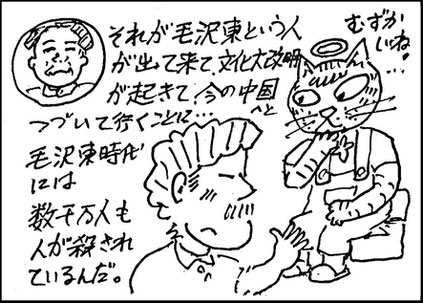 それが毛沢東という人
が出て来て、文化大改明
が起きて、今の中国へと
つづいて行くことに…
毛沢東時代
には
数千万人も
人が殺され
ているんだ。
むずか
しいね!